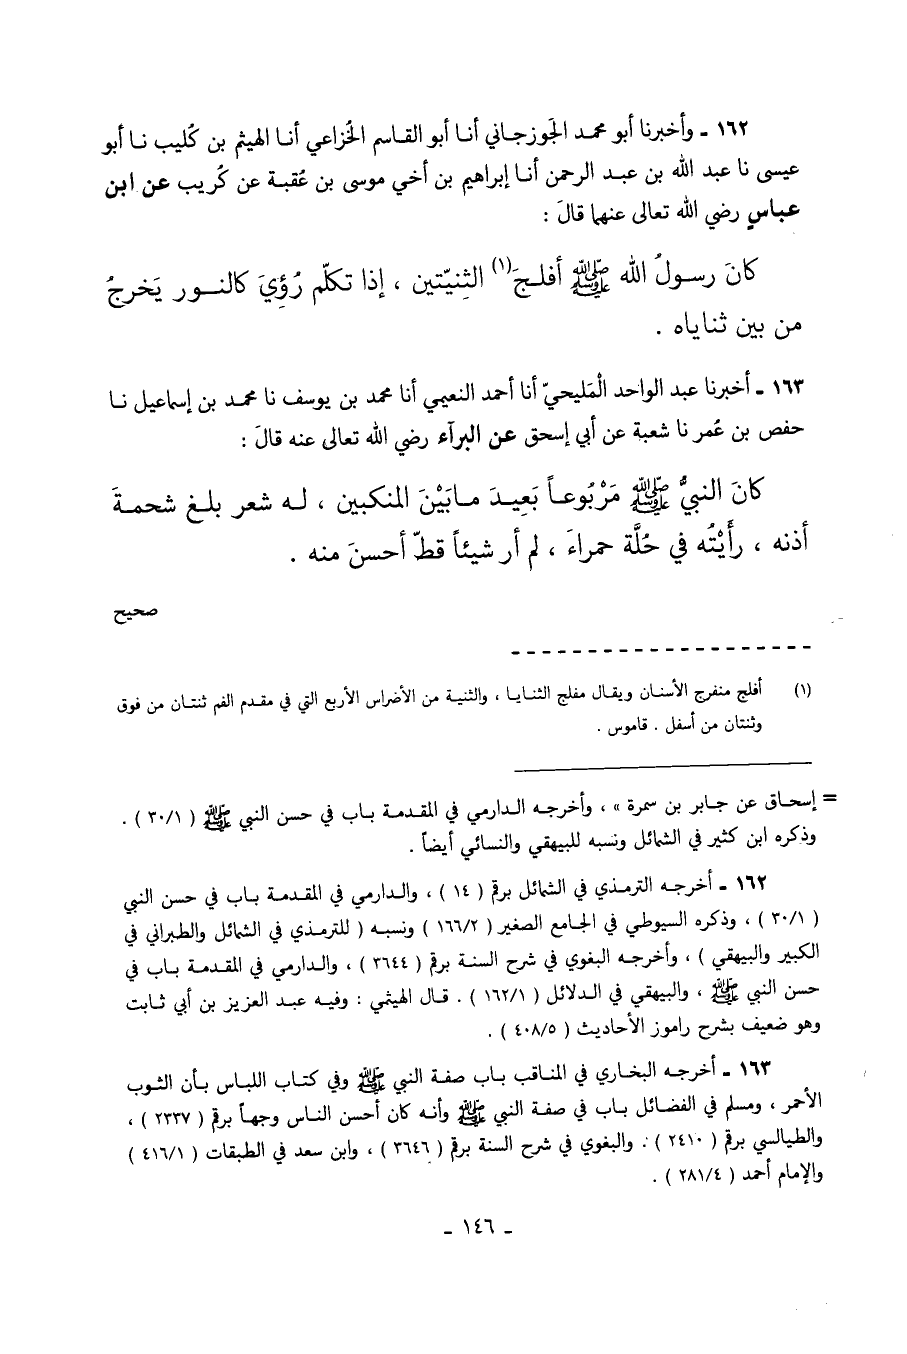 ١٦٢ ـ وأخبرنا أبو محمد الجَوزجاني أنـا أبو القاسم الخُزاعي أنـا الهيثم بن كُليب نـا أبو
عيسى نا عبد الله بن عبـد الرحمن أنـا إبراهيم بن أخي موسى بن عُقبـة عن كُريب عن ابن
عباسٍ رضي الله تعالى عنهما قالَ :
كانَ رسـولُ الله ﷺ أفلـجَ(١) الثنِيّتين ، إذا تكلّم رُؤِيَ كالنـور يَخرجُ
من بين ثناياه .
١٦٣ ـ أخبرنا عبد الواحد الْمَليحيّ أنا أحمد النعيمي أنا محمد بن يوسف نا محمـد بن إسماعيل نـا
حفص بن عُمر نا شعبة عن أبي إسحق عن البرآء رضي الله تعالى عنه قالَ :
كانَ النبيُّ ﷺ مَرْبُوعـاً بَعِيـدَ مـابَيْنَ المنكبين ، لـه شعر بلـغ شحمـةَ
أذنه ، رأَيْتُه في حُلَّة حمراءَ ، لم أر شيئاً قطّ أحسنَ منه .
صحيح
(١) أفلج منفرج الأسنان ويقال مفلج الثنايـا ، والثنية من الأضراس الأربع التي في مقدم الفم ثنتـان من فوق
وثنتان من أسفل . قاموس .
= إسحاق عن جـابر بن سمرة » ، وأخرجـه الـدارمي في المقدمـة بـاب في حسن النبي ﷺ ( ٣٠/١ ) .
وذكره ابن كثير في الشمائل ونسبه للبيهقي والنسائي أيضاً .
١٦٢ ـ أخرجـه الترمـذي في الشمائل برقم ( ١٤ ) ، والـدارمي في المقـدمـة بـاب في حسن النبي
( ٣٠/١ ) ، وذكره السيوطي في الجامع الصغير ( ١٦٦/٢ ) ونسبـه ( للترمذي في الشمائل والطبراني في
الكبير والبيهقي ) ، وأخرجـه البغوي في شرح السنـة برقم ( ٣٦٤٤ ) ، والـدارمي في المقدمـة باب في
حسن النبي ﷺ ، والبيهقي في الـدلائل ( ١٦٢/١ ) . قـال الهيثمي : وفيـه عبـد العزيز بن أبي ثـابت
وهو ضعيف بشرح راموز الأحاديث ( ٤٠٨/٥ ) .
١٦٣ ـ أخرجـه البخاري في المناقب بـاب صفـة النبي ﷺ وفي كتـاب اللباس بـأن الثـوب
الأحمر ، ومسلم في الفضائل بـاب في صفـة النبي ﷺ وأنـه كان أحسن الناس وجهـاً برقم ( ٢٣٣٧ ) ،
والطيالسي برقم ( ٢٤١٠ ) . والبغوي في شرح السنة برقم ( ٣٦٤٦ ) ، وابن سعد في الطبقات ( ٤١٦/١ )
والإمام أحمد ( ٢٨١/٤ ) .
ـ ١٤٦ ـ